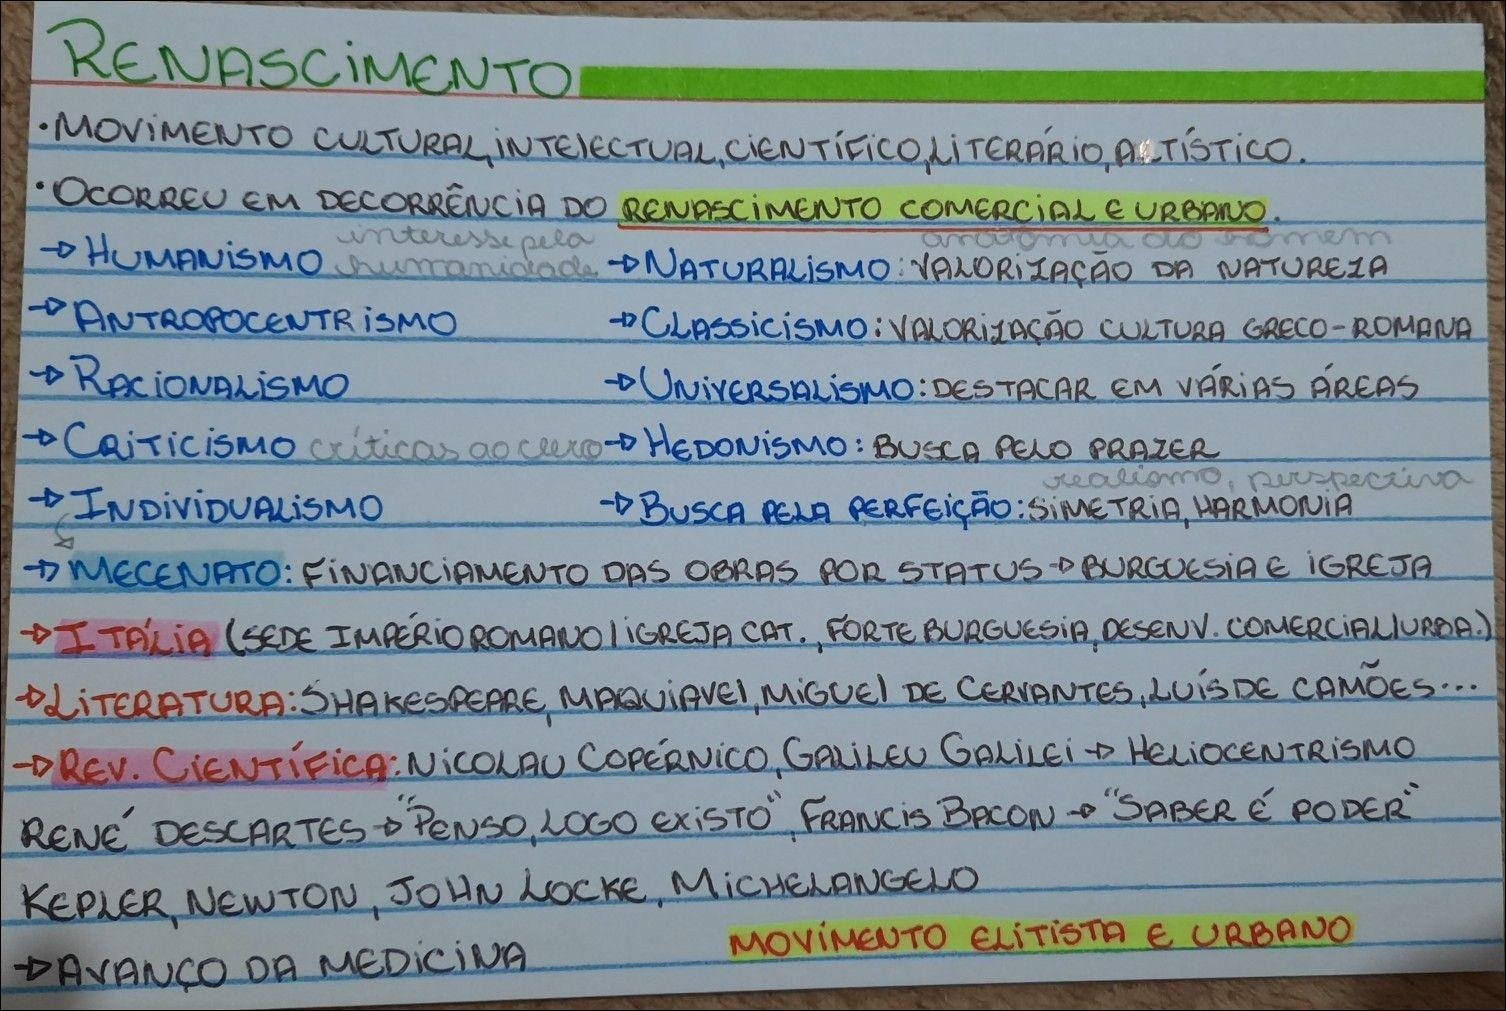 RENASCIMENTO
• MOVIMENTO CULTURAL, INTELECTUAL, CIENTÍFICO, LITERÁRIO, ARTÍSTICO.
• OCORREU EM DECORRÊNCIA DO RENASCIMENTO COMERCIAL E URBANO.
→ HUMANISMO interesse pela humanidade
→ NATURALISMO: VALORIZAÇÃO DA NATUREZA
anatomia do homem
→ ANTROPOCENTRISMO
→ CLASSICISMO: VALORIZAÇÃO CULTURA GRECO-ROMANA
→ RACIONALISMO
→ UNIVERSALISMO: DESTACAR EM VÁRIAS ÁREAS
→ CRITICISMO críticas ao clero
→ HEDONISMO: BUSCA PELO PRAZER
→ INDIVIDUALISMO
realismo, perspectiva
→ BUSCA PELA PERFEIÇÃO: SIMETRIA, HARMONIA
→ MECENATO: FINANCIAMENTO DAS OBRAS POR STATUS → BURGUESIA E IGREJA
→ ITÁLIA (SEDE IMPÉRIO ROMANO/IGREJA CAT., FORTE BURGUESIA, DESENV. COMERCIAL/URBA.)
→ LITERATURA: SHAKESPEARE, MAQUIAVEL, MIGUEL DE CERVANTES, LUÍS DE CAMÕES...
→ REV. CIENTÍFICA: NICOLAU COPÉRNICO, GALILEU GALILEI → HELIOCENTRISMO
RENÉ DESCARTES → "PENSO, LOGO EXISTO", FRANCIS BACON → "SABER É PODER"
KEPLER, NEWTON, JOHN LOCKE, MICHELANGELO
→ AVANÇO DA MEDICINA
MOVIMENTO ELITISTA E URBANO